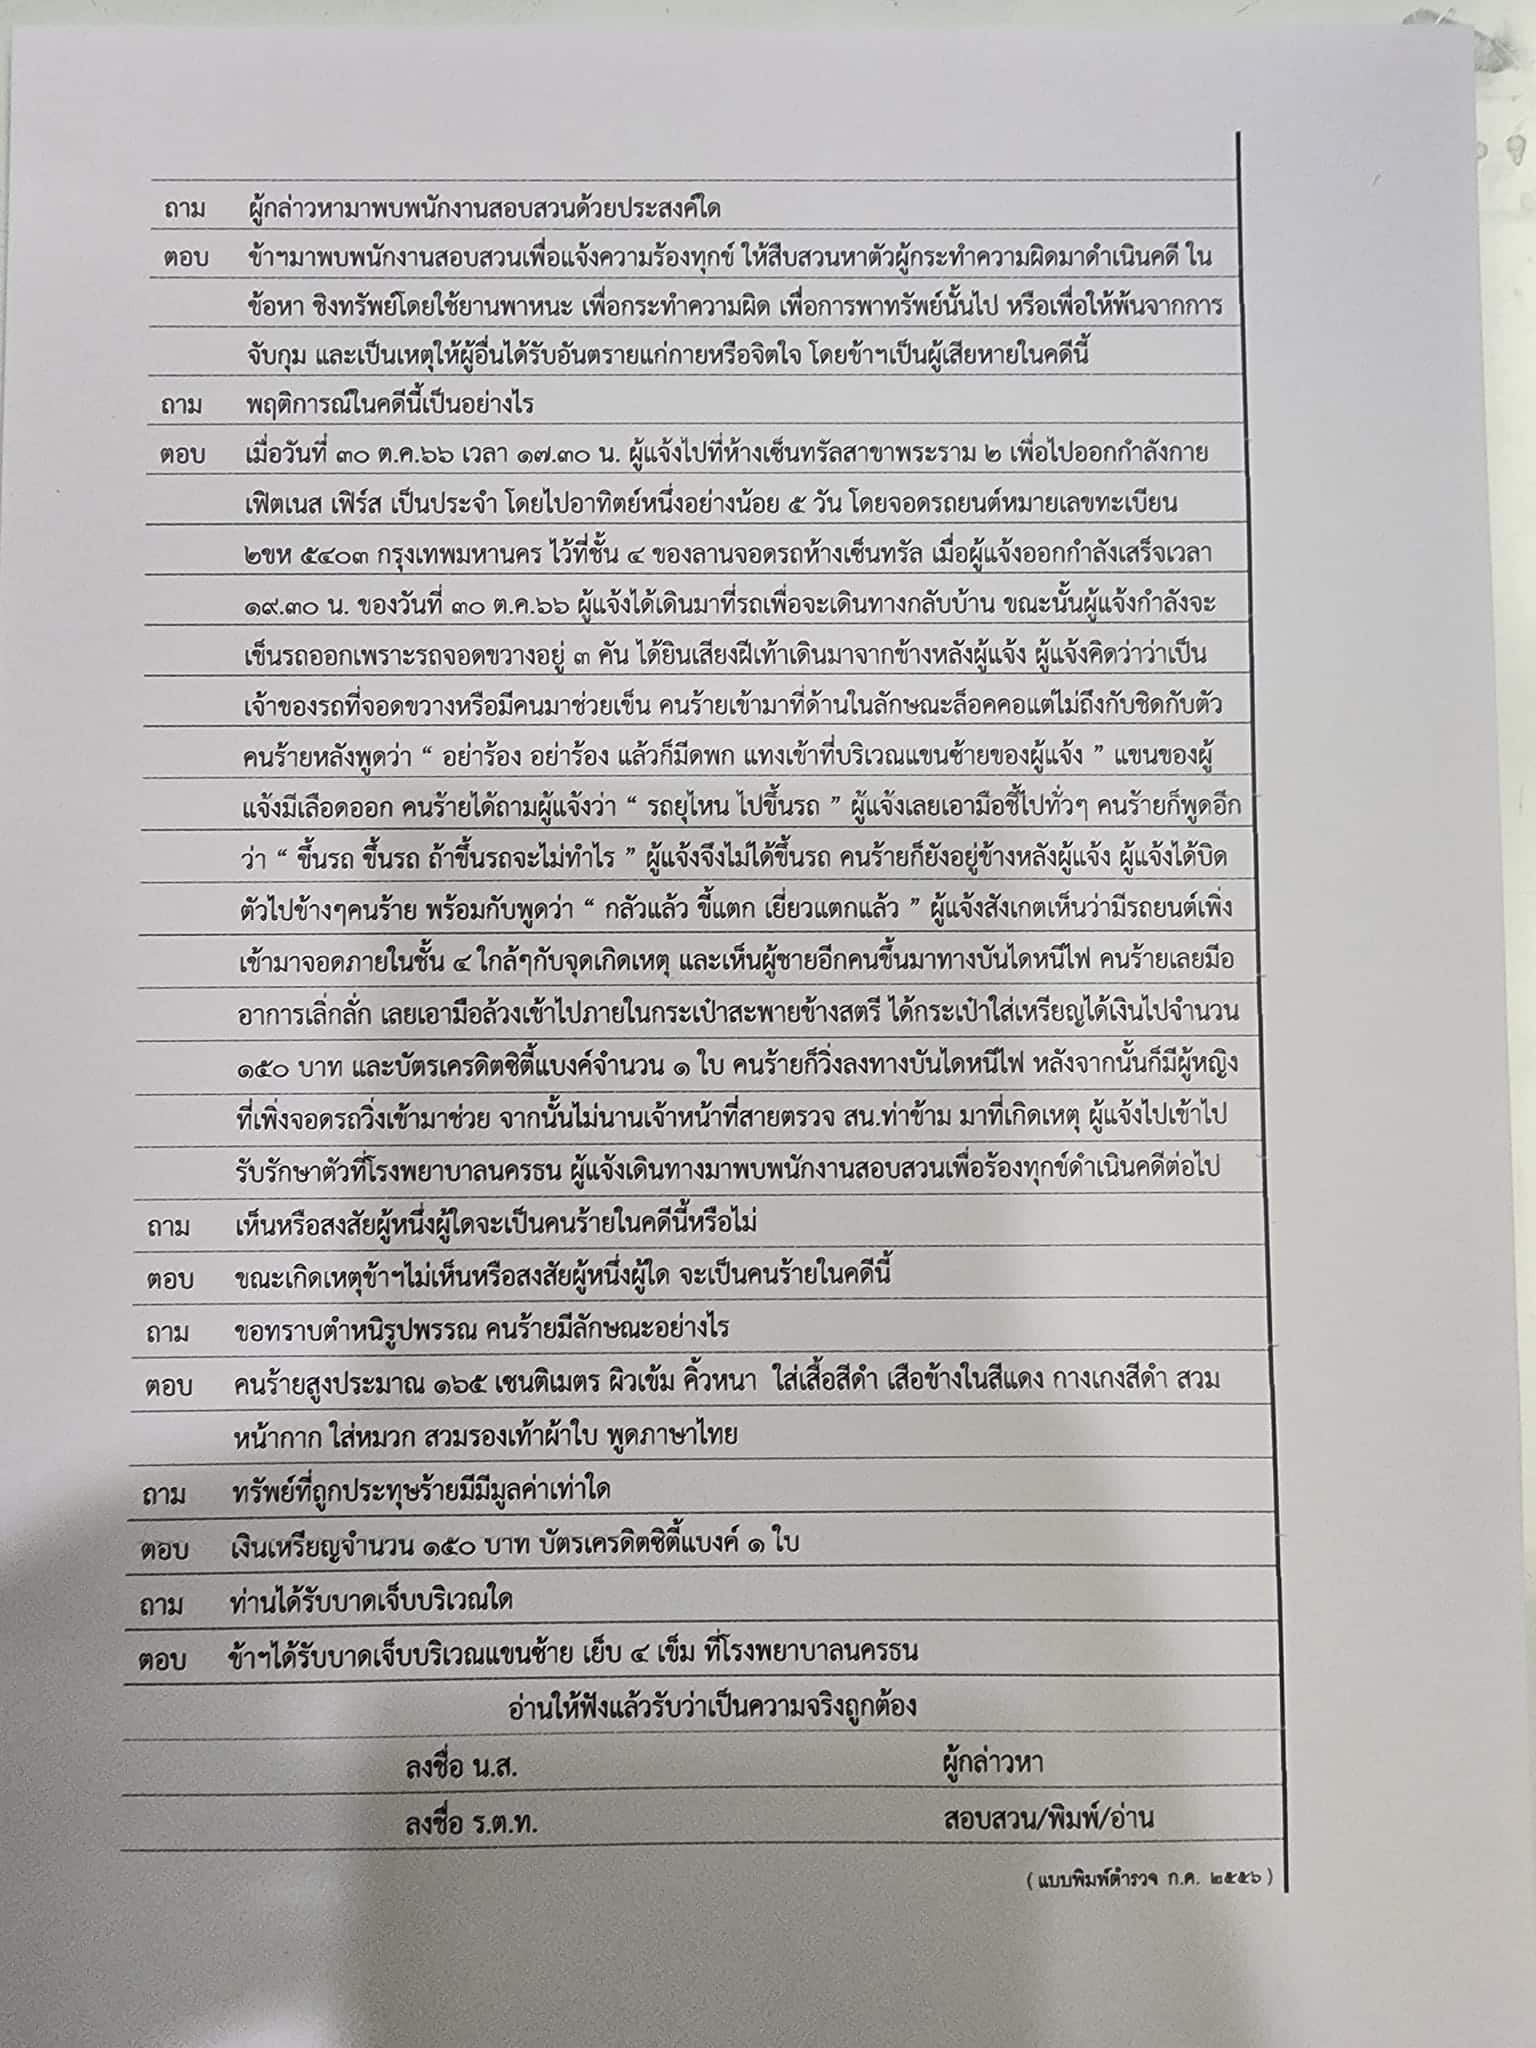 ถาม ผู้กล่าวหามาพบพนักงานสอบสวนด้วยประสงค์ใด
ตอบ ข้าฯมาพบพนักงานสอบสวนเพื่อแจ้งความร้องทุกข์ ให้สืบสวนหาตัวผู้กระทำความผิดมาดำเนินคดี ใน
ข้อหา ชิงทรัพย์โดยใช้ยานพาหนะ เพื่อกระทำความผิด เพื่อการพาทรัพย์นั้นไป หรือเพื่อให้พ้นจากการ
จับกุม และเป็นเหตุให้ผู้อื่นได้รับอันตรายแก่กายหรือจิตใจ โดยข้าฯเป็นผู้เสียหายในคดีนี้
ถาม พฤติการณ์ในคดีนี้เป็นอย่างไร
ตอบ เมื่อวันที่ ๓๐ ต.ค.๖๖ เวลา ๑๗.๓๐ น. ผู้แจ้งไปที่ห้างเซ็นทรัลสาขาพระราม ๒ เพื่อไปออกกำลังกาย
เฟิตเนส เฟิร์ส เป็นประจำ โดยไปอาทิตย์หนึ่งอย่างน้อย ๕ วัน โดยจอดรถยนต์หมายเลขทะเบียน
๒ขห ๕๔๐๓ กรุงเทพมหานคร ไว้ที่ชั้น ๔ ของลานจอดรถห้างเซ็นทรัล เมื่อผู้แจ้งออกกำลังเสร็จเวลา
๑๙.๓๐ น. ของวันที่ ๓๐ ต.ค.๖๖ ผู้แจ้งได้เดินมาที่รถเพื่อจะเดินทางกลับบ้าน ขณะนั้นผู้แจ้งกำลังจะ
เข็นรถออกเพราะรถจอดขวางอยู่ ๓ คัน ได้ยินเสียงฝีเท้าเดินมาจากข้างหลังผู้แจ้ง ผู้แจ้งคิดว่าว่าเป็น
เจ้าของรถที่จอดขวางหรือมีคนมาช่วยเข็น คนร้ายเข้ามาที่ด้านในลักษณะล็อคคอแต่ไม่ถึงกับชิดกับตัว
คนร้ายหลังพูดว่า “ อย่าร้อง อย่าร้อง แล้วก็มีดพก แทงเข้าที่บริเวณแขนซ้ายของผู้แจ้ง ” แขนของผู้
แจ้งมีเลือดออก คนร้ายได้ถามผู้แจ้งว่า “ รถยุไหน ไปขึ้นรถ ” ผู้แจ้งเลยเอามือชี้ไปทั่วๆ คนร้ายก็พูดอีก
ว่า “ ขึ้นรถ ขึ้นรถ ถ้าขึ้นรถจะไม่ทำไร ” ผู้แจ้งจึงไม่ได้ขึ้นรถ คนร้ายก็ยังอยู่ข้างหลังผู้แจ้ง ผู้แจ้งได้บิด
ตัวไปข้างๆคนร้าย พร้อมกับพูดว่า “ กลัวแล้ว ขี้แตก เยี่ยวแตกแล้ว ” ผู้แจ้งสังเกตเห็นว่ามีรถยนต์เพิ่ง
เข้ามาจอดภายในชั้น ๔ ใกล้ๆกับจุดเกิดเหตุ และเห็นผู้ชายอีกคนขึ้นมาทางบันไดหนีไฟ คนร้ายเลยมีอ
อาการเลิ่กลั่ก เลยเอามือล้วงเข้าไปภายในกระเป๋าสะพายข้างสตรี ได้กระเป๋าใส่เหรียญได้เงินไปจำนวน
๑๕๐ บาท และบัตรเครดิตซิตี้แบงค์จำนวน ๑ ใบ คนร้ายก็วิ่งลงทางบันไดหนีไฟ หลังจากนั้นก็มีผู้หญิง
ที่เพิ่งจอดรถวิ่งเข้ามาช่วย จากนั้นไม่นานเจ้าหน้าที่สายตรวจ สน.ท่าข้าม มาที่เกิดเหตุ ผู้แจ้งไปเข้าไป
รับรักษาตัวที่โรงพยาบาลนครธน ผู้แจ้งเดินทางมาพบพนักงานสอบสวนเพื่อร้องทุกข์ดำเนินคดีต่อไป
ถาม เห็นหรือสงสัยผู้หนึ่งผู้ใดจะเป็นคนร้ายในคดีนี้หรือไม่
ตอบ ขณะเกิดเหตุข้าฯไม่เห็นหรือสงสัยผู้หนึ่งผู้ใด จะเป็นคนร้ายในคดีนี้
ถาม ขอทราบตำหนิรูปพรรณ คนร้ายมีลักษณะอย่างไร
ตอบ คนร้ายสูงประมาณ ๑๖๕ เซนติเมตร ผิวเข้ม คิ้วหนา ใส่เสื้อสีดำ เสือข้างในสีแดง กางเกงสีดำ สวม
หน้ากาก ใส่หมวก สวมรองเท้าผ้าใบ พูดภาษาไทย
ถาม ทรัพย์ที่ถูกประทุษร้ายมีมีมูลค่าเท่าใด
ตอบ เงินเหรียญจำนวน ๑๕๐ บาท บัตรเครดิตซิตี้แบงค์ ๑ ใบ
ถาม ท่านได้รับบาดเจ็บบริเวณใด
ตอบ ข้าฯได้รับบาดเจ็บบริเวณแขนซ้าย เย็บ ๔ เข็ม ที่โรงพยาบาลนครธน
อ่านให้ฟังแล้วรับว่าเป็นความจริงถูกต้อง
ลงชื่อ น.ส. ผู้กล่าวหา
ลงชื่อ ร.ต.ท. สอบสวน/พิมพ์/อ่าน
( แบบพิมพ์ตำรวจ ก.ค. ๒๕๕๖ )